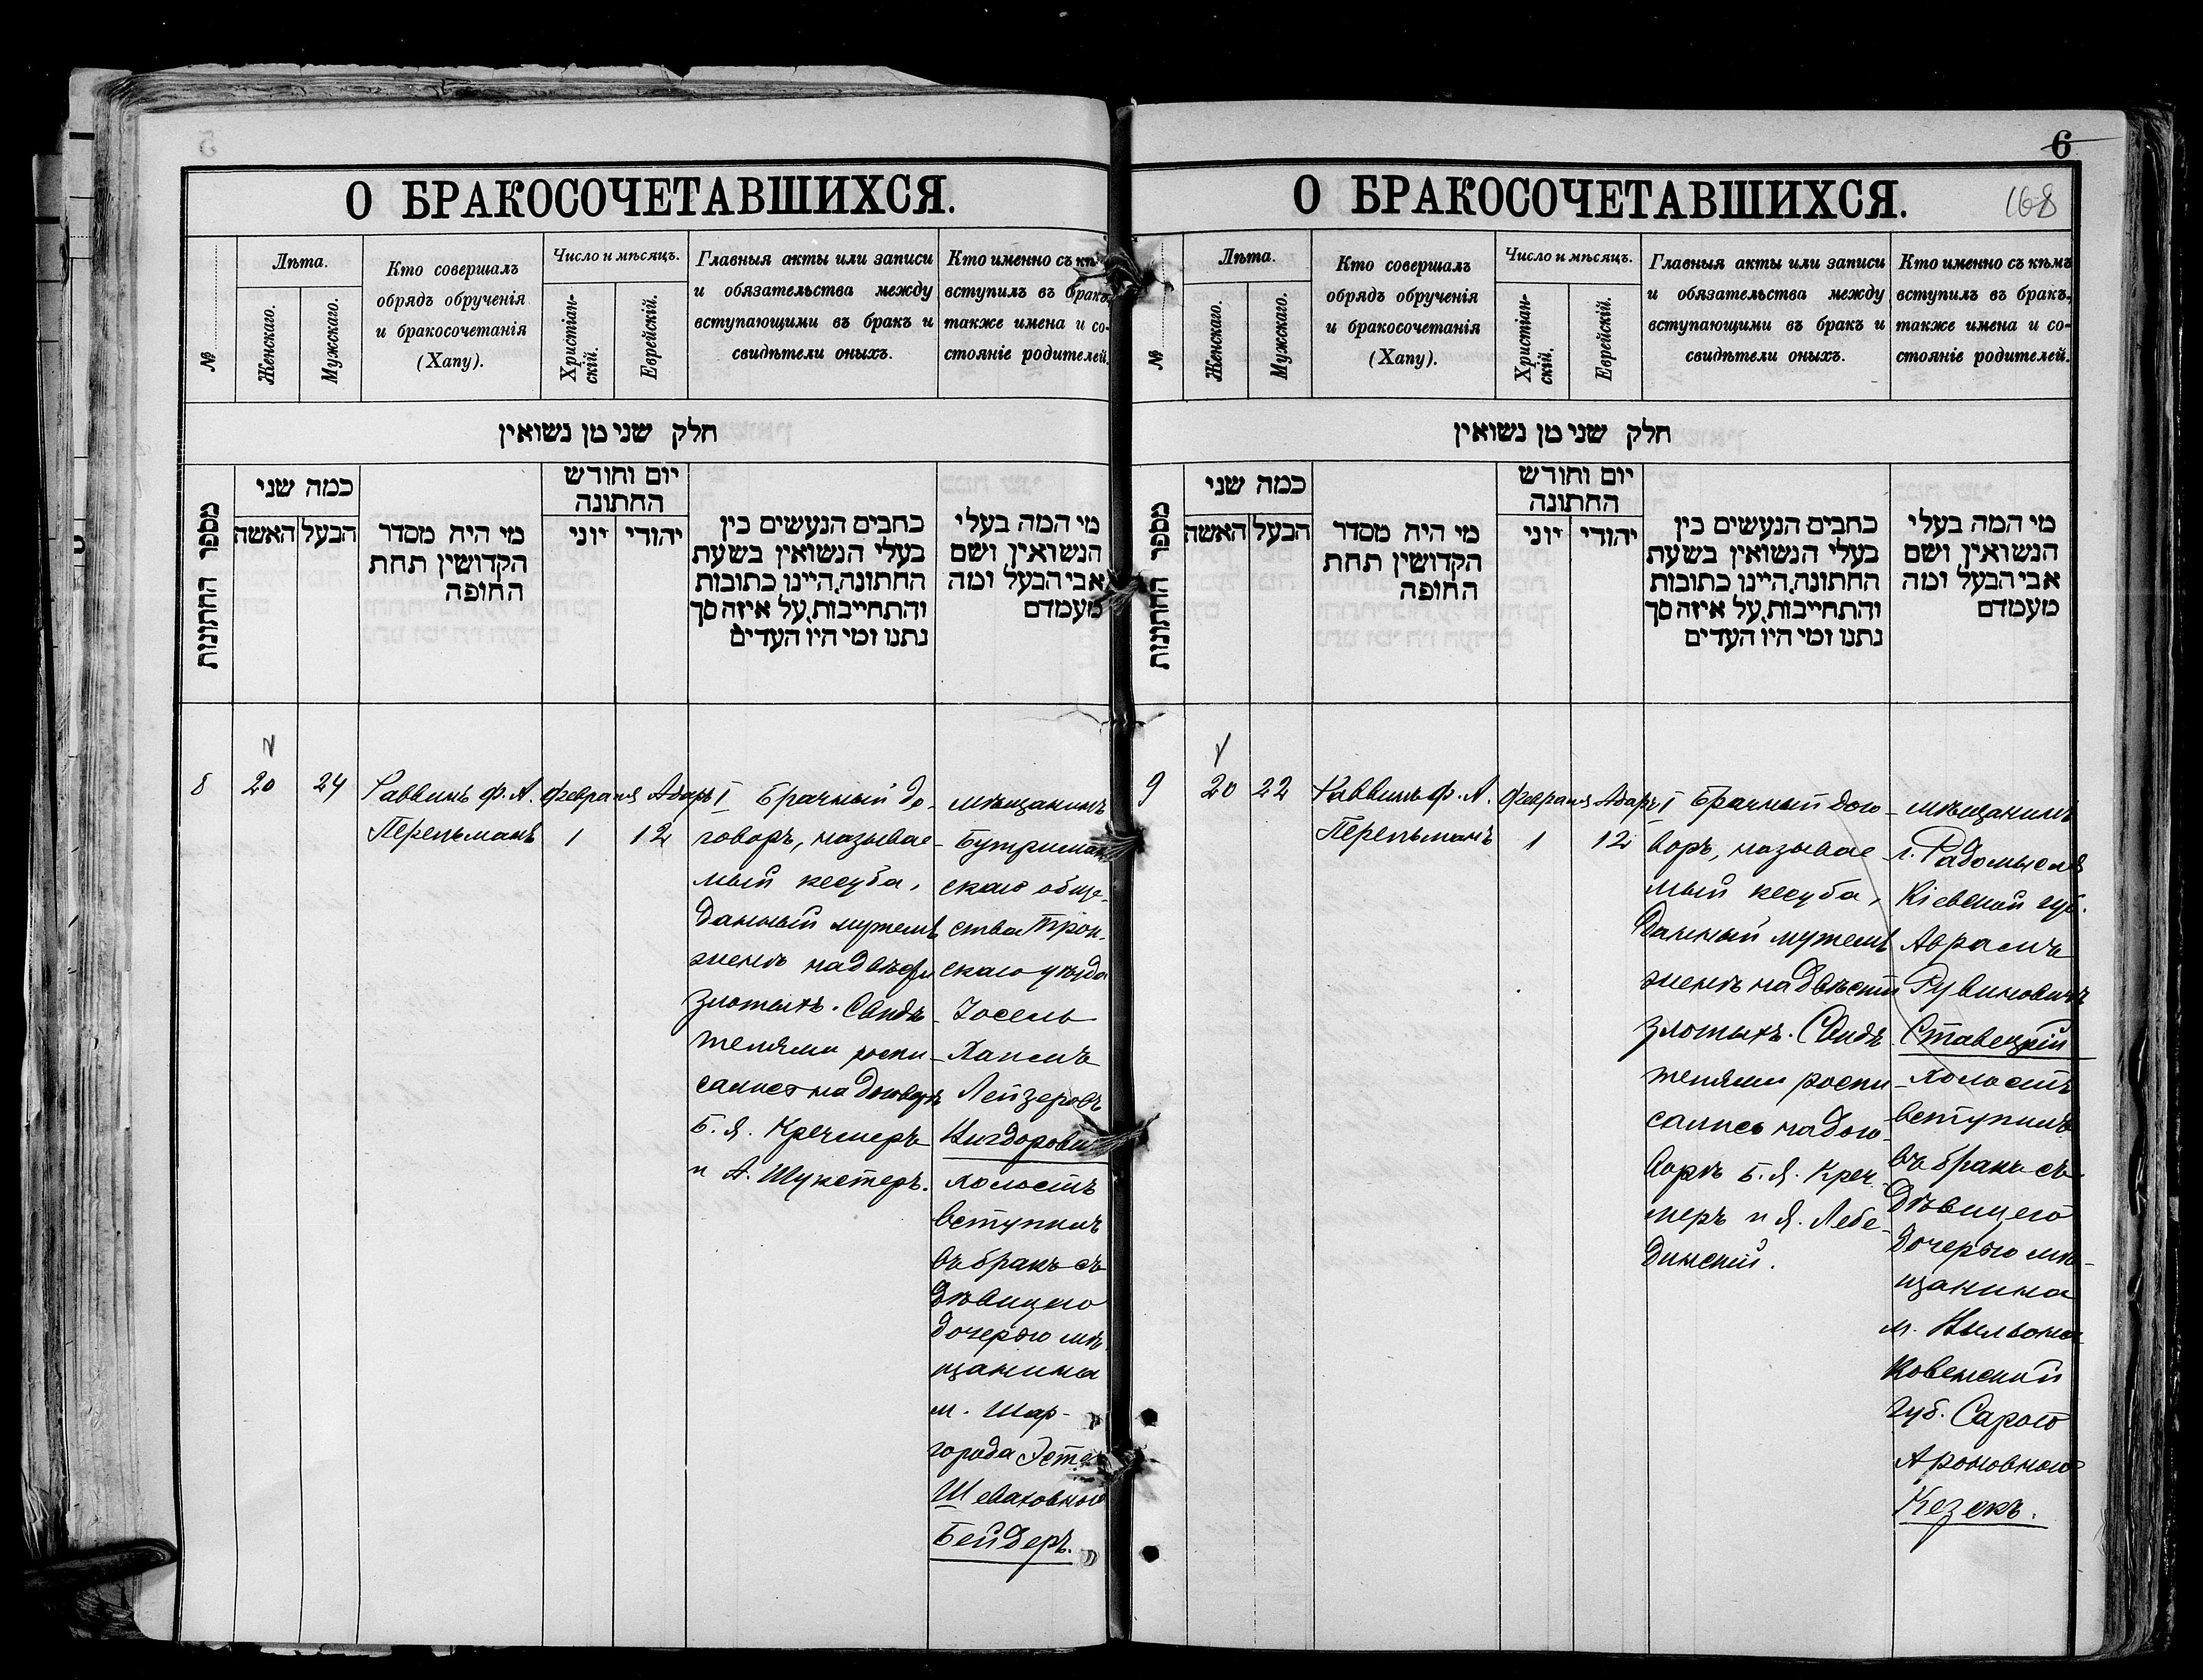 О БРАКОСОЧЕТАВШИХСЯ.
№
Лѣта.
Женскаго.
Мужскаго.
Кто совершалъ
обрядъ обрученія
и бракосочетанія
(Хапу).
Число и мѣсяцъ.
Христіан-
скій.
Еврейскій.
Главныя акты или записи
и обязательства между
вступающими въ бракъ и
свидѣтели оныхъ.
Кто именно съ
вступилъ въ бракъ,
также имена и со-
стояніе родителей.
חלק שני מן נשואין
מספר החתונות
כמה שני
האשה
הבעל
מי היה מסדר
הקדושין תחת
החופה
יום וחודש
החתונה
יוני
יהודי
כתבים הנעשים בין
בעלי הנשואין בשעת
החתונה, היינו כתובות
והתחייבות, על איזה סך
נתנו ומי היו העדים
מי המה בעלי
הנשואין ושם
אבי הבעל ומה
מעמדם
8
20
24
Раввинъ Ф. А.
Перельманъ
Февраля
1
Адаръ I
12
Брачный до-
говоръ, называе-
мый кесуба,
данный мужемъ
женѣ на двѣсти
злотыхъ. Свидѣ-
телями роспи-
сались на договорѣ
Б. Я. Кречмеръ
и А. Шустеръ.
мѣщанинъ
скаго обще-
ства Трок-
скаго уѣзда
Іосель
Хаимъ
Лейзеровъ
холостъ
вступилъ
въ бракъ съ
дѣвицею
дочерью мѣ-
щанина
м. Шар-
города
Шеваховною
Бейдеръ.
6
О БРАКОСОЧЕТАВШИХСЯ.
168
№
Лѣта.
Женскаго.
Мужскаго.
Кто совершалъ
обрядъ обрученія
и бракосочетанія
(Хапу).
Число и мѣсяцъ.
Христіан-
скій.
Еврейскій.
Главныя акты или записи
и обязательства между
вступающими въ бракъ и
свидѣтели оныхъ.
Кто именно съ кѣмъ
вступилъ въ бракъ,
также имена и со-
стояніе родителей.
חלק שני מן נשואין
מספר החתונות
כמה שני
האשה
הבעל
מי היה מסדר
הקדושין תחת
החופה
יום וחודש
החתונה
יוני
יהודי
כתבים הנעשים בין
בעלי הנשואין בשעת
החתונה, היינו כתובות
והתחייבות, על איזה סך
נתנו ומי היו העדים
מי המה בעלי
הנשואין ושם
אבי הבעל ומה
מעמדם
9
20
22
Раввинъ Ф. А.
Перельманъ
Февраля
1
Адаръ I
12
Брачный дого-
воръ, называе
мый кесуба,
данный мужемъ
женѣ на двѣсти
злотыхъ. Свидѣ
телями роспи
сались на дого-
ворѣ Б. Я. Креч-
меръ и Я. Лебе-
динскій.
мѣщанинъ
г. Радомысля
Кіевской губ.
Аврамъ
Рувиновичъ
Ставецкій
холостъ
вступилъ
въ бракъ съ
дѣвицею
дочерью мѣ-
щанина
м.
Ковенской
губ. Сарою
Ароновною
Кезекъ.